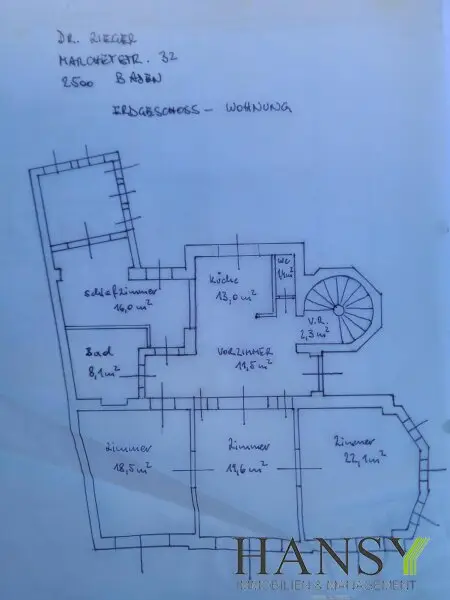 DR. RIEGER
MARCHETSTR. 32
2500 BADEN
ERDGESCHOSS - WOHNUNG
WC
1,4m²
Küche
13,0m²
Schlafzimmer
16,0m²
V.R.
2,3m²
Bad
8,1m²
VORZIMMER
11,5m²
Zimmer
18,5m²
Zimmer
19,6m²
Zimmer
22,1m²
HANSY
IMMOBILIEN & MANAGEMENT